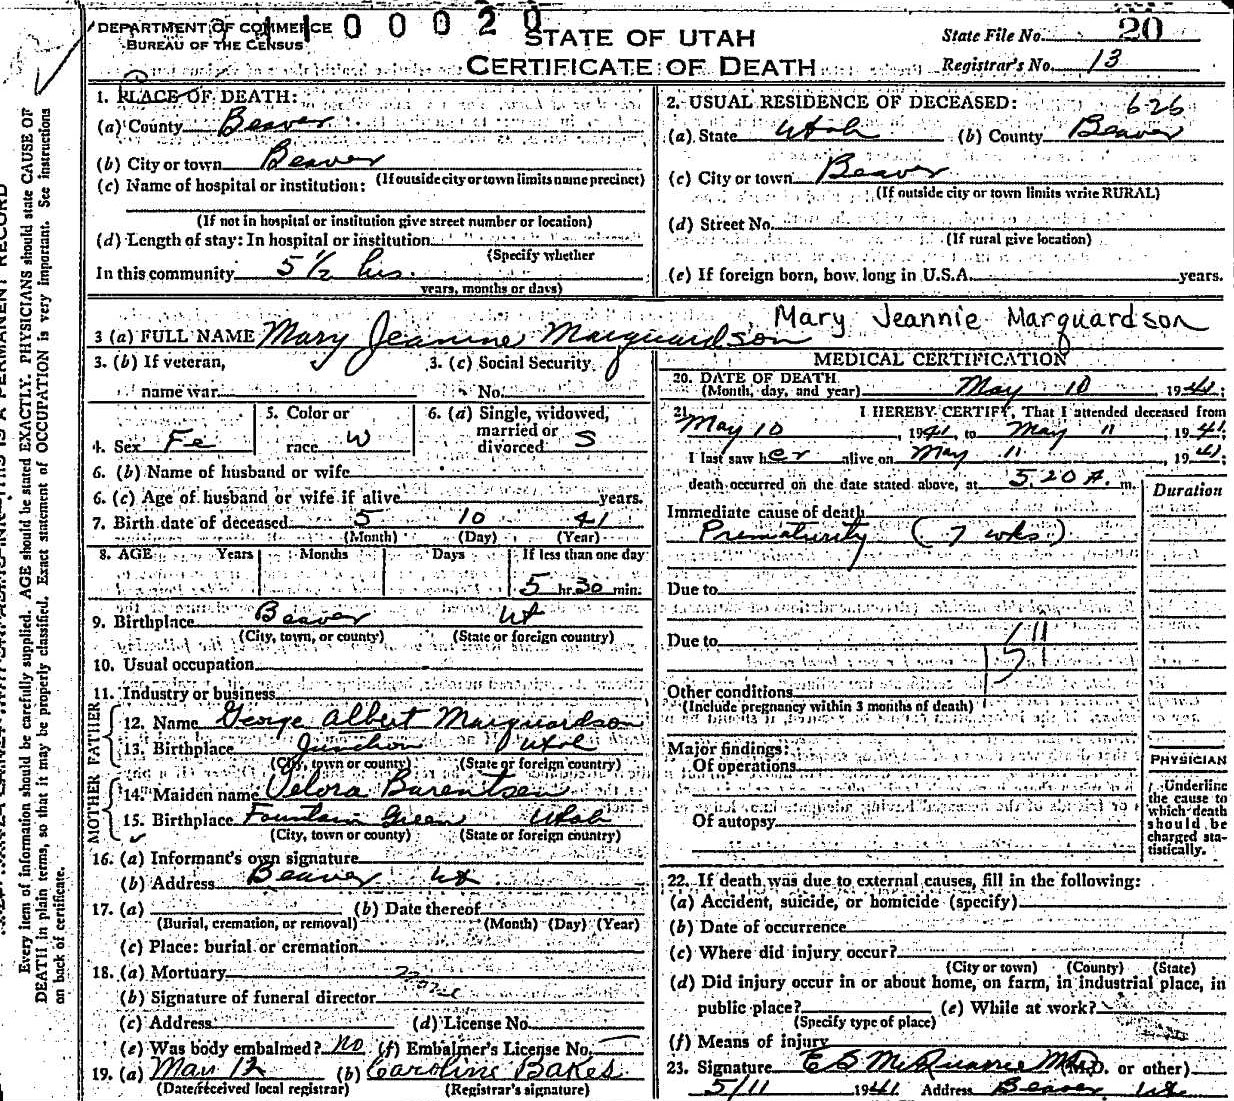 DEPARTMENT OF COMMERCE
BUREAU OF THE CENSUS
0 0 0 2 0
STATE OF UTAH
CERTIFICATE OF DEATH
State File No. 20
Registrar's No. 13
1. PLACE OF DEATH:
(a) County Beaver
(b) City or town Beaver
(If outside city or town limits name precinct)
(c) Name of hospital or institution:
(If not in hospital or institution give street number or location)
(d) Length of stay: In hospital or institution
(Specify whether
In this community 5 1/2 hrs.
years, months or days)
2. USUAL RESIDENCE OF DECEASED: 626
(a) State Utah (b) County Beaver
(c) City or town Beaver
(If outside city or town limits write RURAL)
(d) Street No.
(If rural give location)
(e) If foreign born, how long in U.S.A. years.
3 (a) FULL NAME Mary Jeanine Marquardson Mary Jeannie Marquardson
3. (b) If veteran,
name war
3. (c) Social Security
No.
4. Sex Fe
5. Color or
race W
6. (a) Single, widowed,
married or
divorced S
6. (b) Name of husband or wife
6. (c) Age of husband or wife if alive years.
7. Birth date of deceased 5 10 41
(Month) (Day) (Year)
8. AGE Years Months Days If less than one day
5 hr. 30 min.
9. Birthplace Beaver Ut
(City, town, or county) (State or foreign country)
10. Usual occupation
11. Industry or business
FATHER
12. Name George Albert Marquardson
13. Birthplace Junction Utah
(City, town or county) (State or foreign country)
MOTHER
14. Maiden name Velora Barentsen
15. Birthplace Fountain Green Utah
(City, town or county) (State or foreign country)
16. (a) Informant's own signature
(b) Address Beaver Ut
17. (a) (b) Date thereof
(Burial, cremation, or removal) (Month) (Day) (Year)
(c) Place: burial or cremation
18. (a) Mortuary none
(b) Signature of funeral director
(c) Address (d) License No.
(e) Was body embalmed? no (f) Embalmer's License No.
19. (a) May 12 (b) Caroline Bakes
(Date received local registrar) (Registrar's signature)
MEDICAL CERTIFICATION
20. DATE OF DEATH
(Month, day, and year) May 10 1941;
21. I HEREBY CERTIFY, That I attended deceased from
May 10, 1941, to May 11, 1941,
I last saw her alive on May 11, 1941;
death occurred on the date stated above, at 5.20 A. m.
Duration
Immediate cause of death
Prematurity (7 wks)
Due to
Due to
Other conditions
(Include pregnancy within 3 months of death)
Major findings:
Of operations
Of autopsy
PHYSICIAN
Underline
the cause to
which death
should be
charged sta-
tistically.
22. If death was due to external causes, fill in the following:
(a) Accident, suicide, or homicide (specify)
(b) Date of occurrence
(c) Where did injury occur?
(City or town) (County) (State)
(d) Did injury occur in or about home, on farm, in industrial place, in
public place? (e) While at work?
(Specify type of place)
(f) Means of injury
23. Signature E S McQuarrie M.D. (M.D. or other)
5/11 1941 Address Beaver Ut
Every item of information should be carefully supplied. AGE should be stated EXACTLY. PHYSICIANS should state CAUSE OF
DEATH in plain terms, so that it may be properly classified. Exact statement of OCCUPATION is very important. See instructions
on back of certificate.